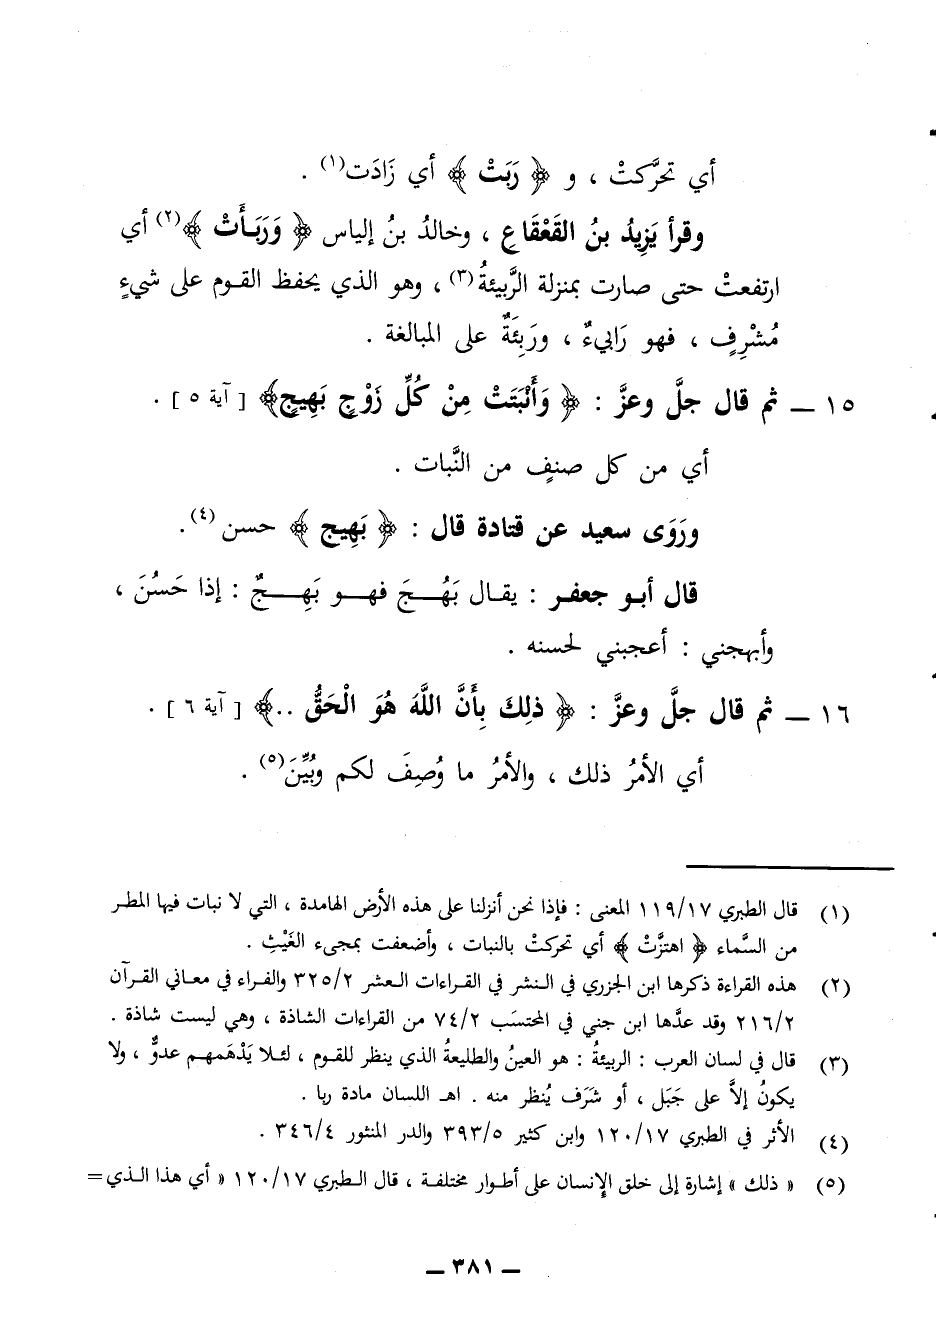 أي تحرَّكتْ ، و ﴿ رَبَتْ ﴾ أي زَادَت(١) .
وقرأ يَزِيدُ بنُ القَعْقَاعِ ، وخالدُ بنُ إلياس ﴿ وَرَبَأَتْ ﴾(٢) أي
ارتفعتْ حتى صارت بمنزلة الرَّبيئةُ(٣) ، وهو الذي يحفظ القوم على شيءٍ
مُشْرِفٍ ، فهو رَابيءٌ ، ورَبِئَةٌ على المبالغة .
١٥ ــ ثم قال جلَّ وعزَّ : ﴿ وَأَنْبَتَتْ مِنْ كُلِّ زَوْجٍ بَهِيجٍ﴾ [ آية ٥ ] .
أي من كل صنفٍ من النَّبات .
ورَوَى سعيد عن قتادة قال : ﴿ بَهِيج ﴾ حسن (٤).
قال أبو جعفر : يقال بَهُجَ فهو بَهِجٌ : إذا حَسُنَ ،
وأبهجني : أعجبني لحسنه .
١٦ ــ ثم قال جلَّ وعزَّ : ﴿ ذلِكَ بِأَنَّ اللَّهَ هُوَ الْحَقُّ ..﴾ [ آية ٦ ] .
أي الأمرُ ذلك ، والأمرُ ما وُصِفَ لكم وبُيِّنَ(٥) .
(١) قال الطبري ١١٩/١٧ المعنى : فإذا نحن أنزلنا على هذه الأرض الهامدة ، التي لا نبات فيها المطر
من السَّماء ﴿ اهتزَّتْ ﴾ أي تحركتْ بالنبات ، وأضعفت بمجىء الغَيْثِ .
(٢) هذه القراءة ذكرها ابن الجزري في النشر في القراءات العشر ٣٢٥/٢ والفراء في معاني القرآن
٢١٦/٢ وقد عدَّها ابن جني في المحتسَب ٧٤/٢ من القراءات الشاذة ، وهي ليست شاذة .
(٣) قال في لسان العرب : الربيئةُ : هو العينُ والطليعةُ الذي ينظر للقوم ، لئلا يَدْهَمهم عدوٌّ ، ولا
يكونُ إلاَّ على جَبَل ، أو شَرَف يُنظر منه . اهـ اللسان مادة ربا .
(٤) الأثر في الطبري ١٢٠/١٧ وابن كثير ٣٩٣/٥ والدر المنثور ٣٤٦/٤ .
(٥) « ذلك » إشارة إلى خلق الإنسان على أطوار مختلفة ، قال الطبري ١٢٠/١٧ « أي هذا الذي=
ــ ٣٨١ ــ